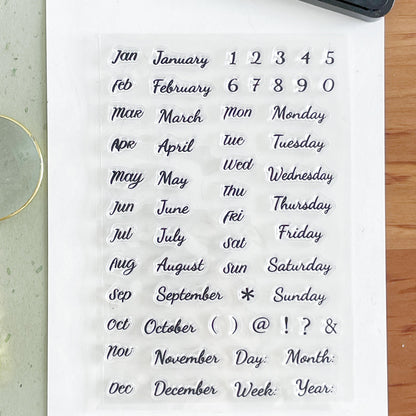 Jan January 1 2 3 4 5
Feb February 6 7 8 9 0
Mar March Mon Monday
Apr April Tue Tuesday
May May Wed Wednesday
Jun June Thu Thursday
Jul July Fri Friday
Aug August Sat Saturday
Sep September Sun * Sunday
Oct October ( ) @ ! ? &
Nov November Day: Month:
Dec December Week: Year: